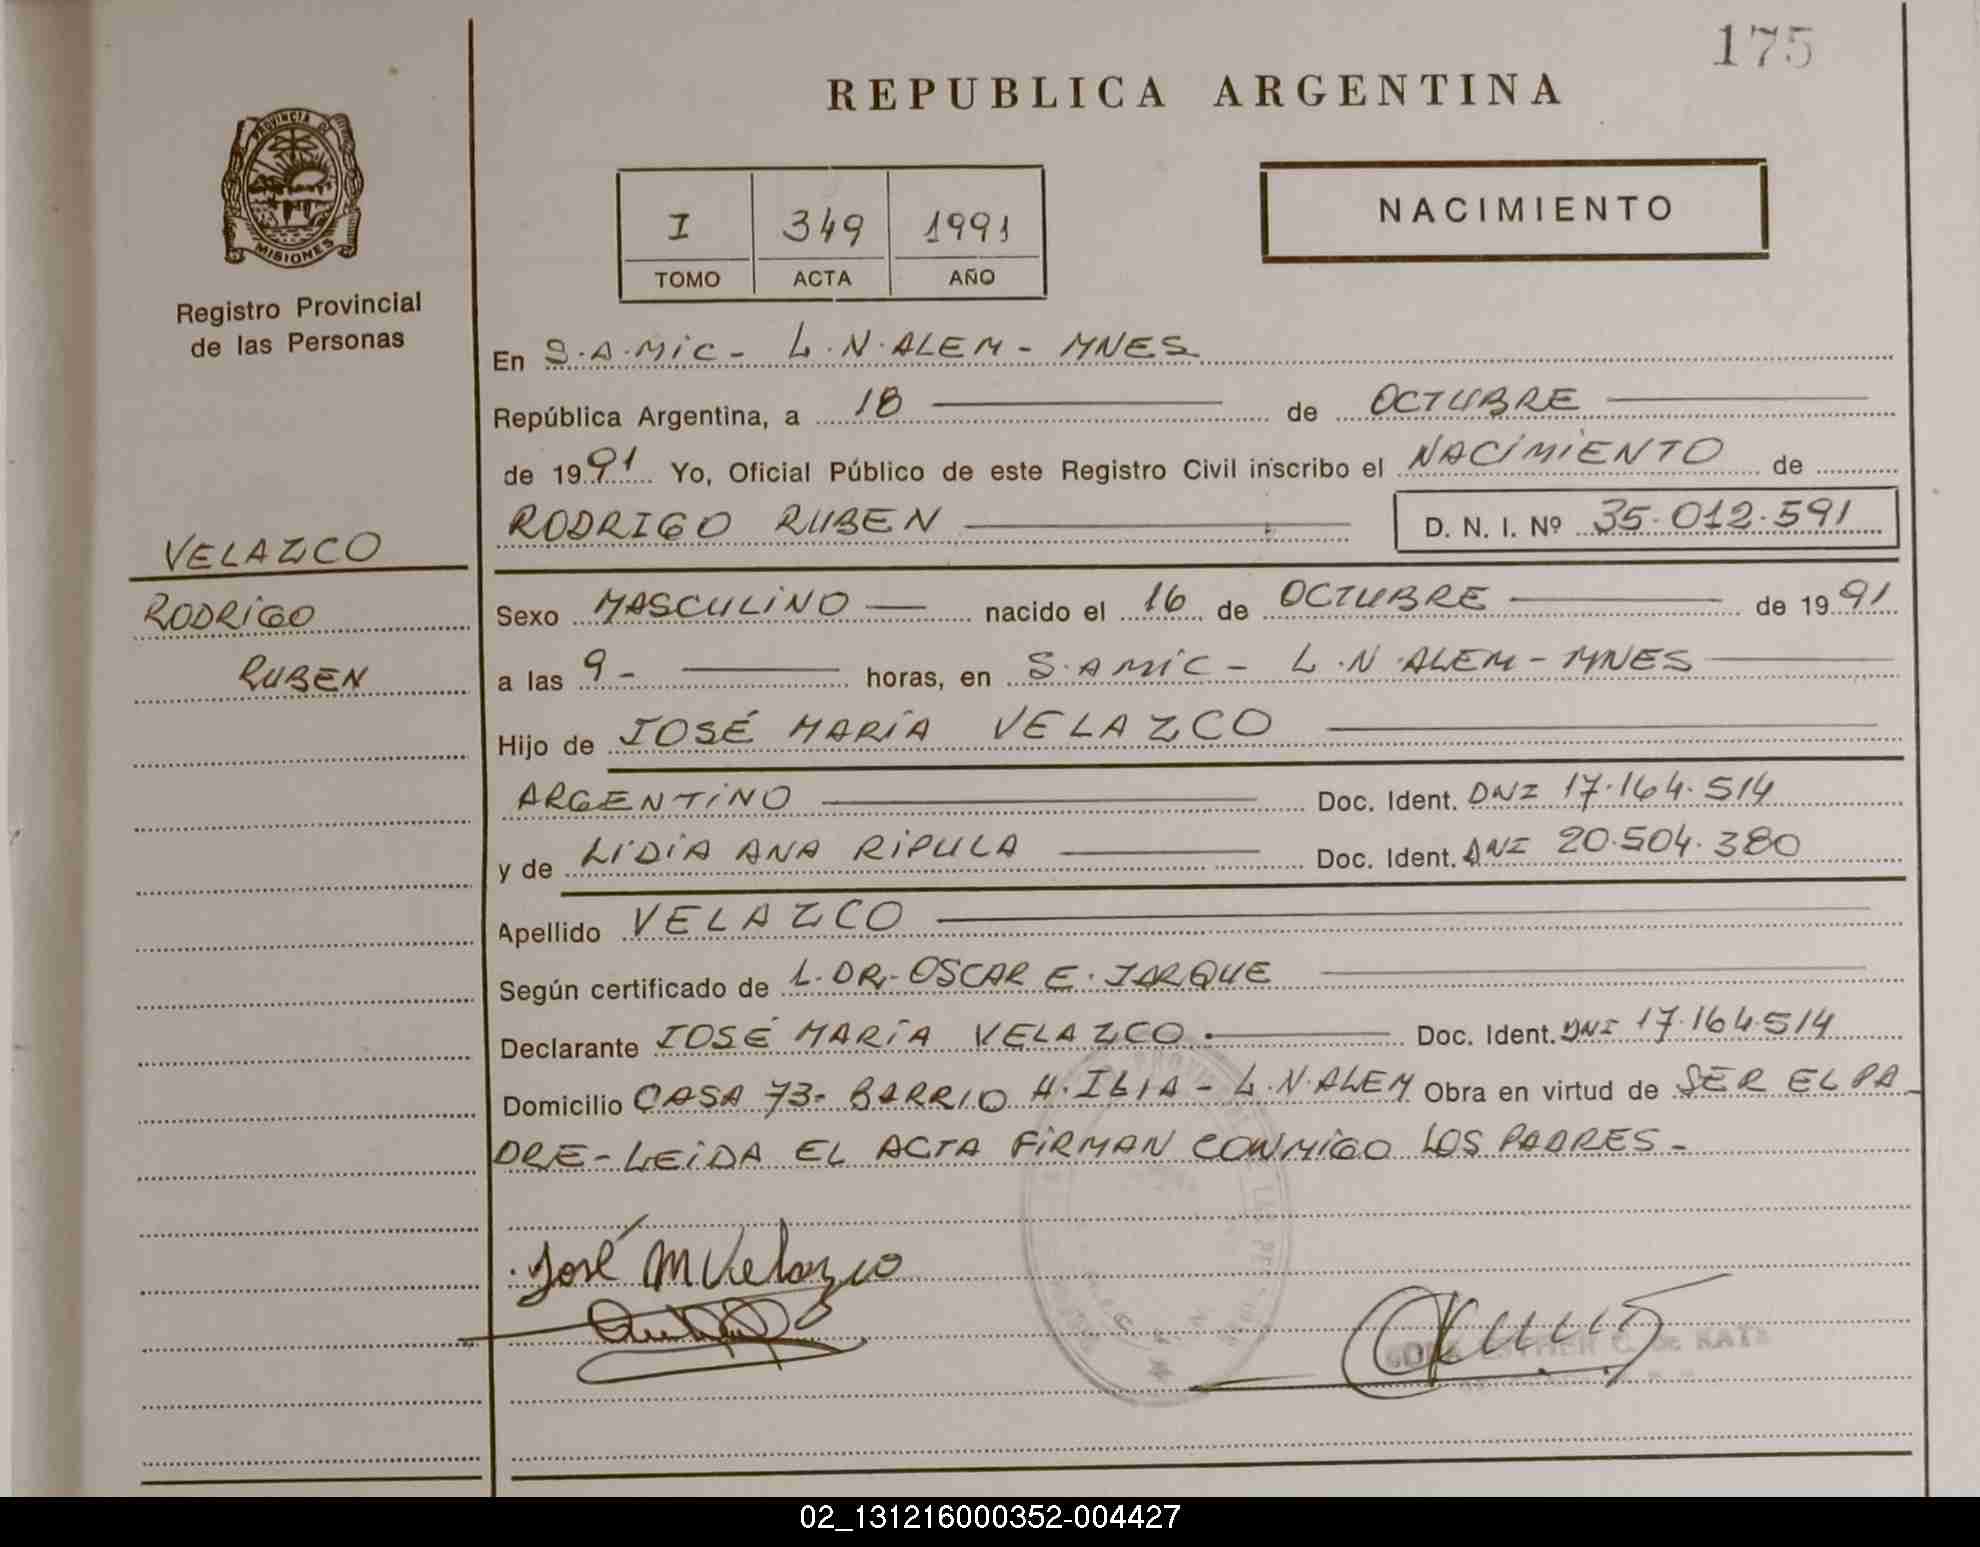 175
REPUBLICA ARGENTINA
PROVINCIA DE
MISIONES
Registro Provincial
de las Personas
I 349 1991
TOMO ACTA AÑO
NACIMIENTO
En S.A.MIC- L.N.ALEM- MNES
República Argentina, a 18 de OCTUBRE
de 1991 Yo, Oficial Público de este Registro Civil inscribo el NACIMIENTO de
RODRIGO RUBEN D. N. I. Nº 35.012.591
VELAZCO
RODRIGO
RUBEN
Sexo MASCULINO nacido el 16 de OCTUBRE de 1991
a las 9- horas, en S.A MIC- L.N.ALEM-MNES
Hijo de JOSÉ MARÍA VELAZCO
ARGENTINO Doc. Ident. DNI 17.164.514
y de LIDIA ANA RIPULA Doc. Ident. DNI 20.504.380
Apellido VELAZCO
Según certificado de L.DR.OSCAR E. JARQUE
Declarante JOSÉ MARÍA VELAZCO. Doc. Ident. DNI 17.164.514
Domicilio CASA 73- BARRIO H. - L.N.ALEM Obra en virtud de SER EL PA
DRE- LEIDA EL ACTA FIRMAN CONMIGO LOS PADRES-
José M Velazco
ESTHER C. de KATZ
02_131216000352-004427